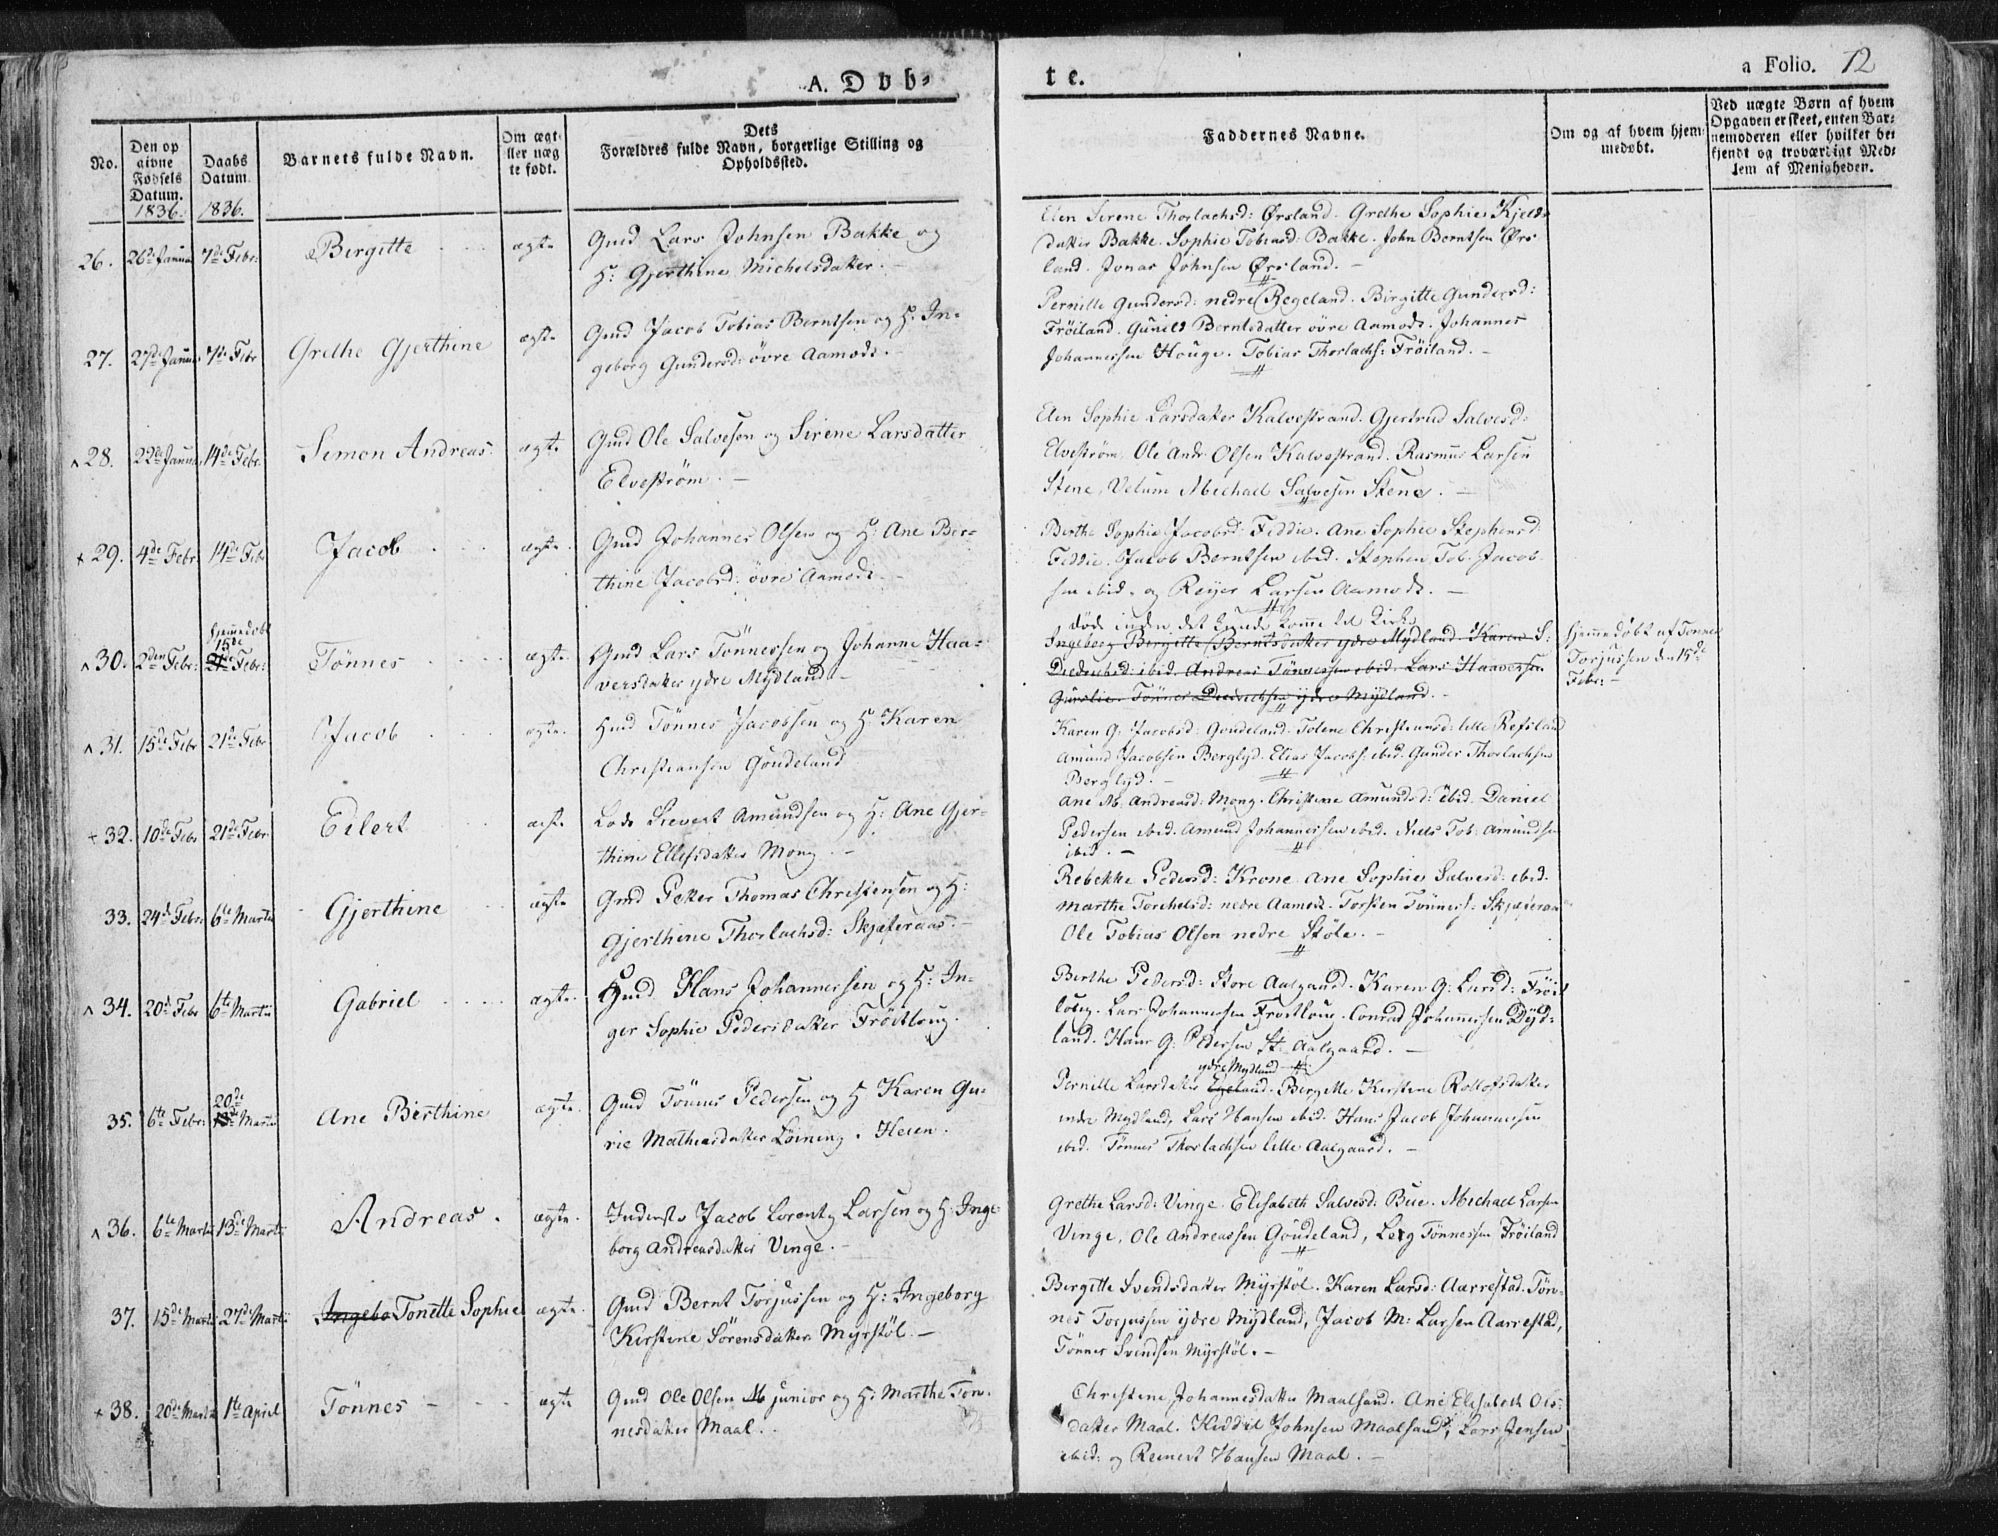 A. Døb-
te.
a Folio. 72
No.
Den op
givne
Fødsels
Datum.
1836.
Daabs
Datum.
1836.
Barnets fulde Navn.
Om ægte
ller uæg
te født.
Dets
Forældres fulde Navn, borgerlige Stilling og
Opholdssted.
Faddernes Navne.
Om og af hvem hjem-
medøbt.
Ved uægte Børn af hvem
Opgaven er skeet, enten Bar-
nemoderen eller hvilket be-
kjendt og troværdigt Med-
lem af Menigheden.
26. 26de Januar 7de Febr: Birgitte ægte
Gmd Lars Johnsen Bakke og
H: Gjerthine Michelsdatter.
Elen Serene Thorlachsd: Ørsland. Grethe Sophie Kjelds
datter Bakke. Sophie Tobiasd: Bakke. John Berntsen Ørs
land. Jonas Johnsen Ørsland. -
27. 27de Januar 7de Febr Grethe Gjerthine ægte
Gmd Jacob Tobias Berntsen og H. In-
geborg Gundersd: øvre Aamodt.
Pernille Gundersd: nedre Regeland. Birgitte Gundersd:
Frøiland. Gunild Berntsdatter øvre Aamodt. Johannes
Johannessen Houge. Tobias Thorlachs: Frøiland. -
28. 22de Januar 14de Febr: Simon Andreas. ægte
Gmd Ole Salvesen og Serene Larsdatter
Elvestrøm. -
Elen Sophie Larsdatter Kalvestrand. Gjertrud Salvesd:
Elvestrøm. Ole Andr: Olsen Kalvestrand. Rasmus Larsen
Stene, Michael Salvesen Stene. -
29. 4de Febr. 14de Febr Jacob ægte
Gmd Johannes Olsen og H: Ane Ber-
thine Jacobsd: øvre Aamodt. -
Berthe Sophie Jacobsd: Feddie. Ane Sophie Stephensd:
Feddie. Jacob Berntsen ibid. Stephen Tob: Jacob-
sen ibid. og Reyer Larsen Aamodt. -
30. 2den Febr:
hjemedøbt
15de
Febr:
Tønnes ægte
Gmd Lars Tønnessen og Johanne Haa-
versdatter ydre Mydland -
døde inden det kunde komme til Kirke
Ingeborg Birgitte Berntsdatter ydre Mydland. Karen S:
Diderichsd: ibid. Andreas Tønnessen ibid. Lars Haaversen
Tønnes Diderichsen ydre Mydland. -
hjemedøbt af Tønnes
Torjussen den 15de
Febr: -
31. 15de Febr 21de Febr Jacob ægte
Hmd Tønnes Jacobsen og H: Karen
Christiansen Goudeland
Karen G. Jacobsd: Goudeland. Tolene Christiansd: lille Refsland
Amund Jacobsen Berglyd. Elias Jacobs: ibid. Gunder Thorlachsen
Berglyd. -
32. 10de Febr 21de Febr Eilert ægte
Lods Sievert Amundsen og H: Ane Gjer-
thine Ellefsdatter Mong. -
Ane M. Andreasd: Mong. Christine Amundsd: ibid. Daniel
Pedersen ibid. Amund Johannessen ibid. Niels Tob: Amundsen
ibid. -
33. 24de Febr: 6te Martii Gjerthine ægte
Gmd Petter Thomas Christensen og H:
Gjerthine Thorlachsd: Skjæferaas. -
Rebekke Pedersd: Krone. Ane Sophie Salvesd: ibid.
Marthe Torchelsd: nedre Aamodt. Torsten Tønness: Skjæferaas
Ole Tobias Olsen nedre Støle. -
34. 20de Febr 6te Martii Gabriel ægte
Gmd Hans Johannessen og H: In-
ger Sophie Pedersdatter Frøitloug.
Berthe Pedersd: Store Aalgaard. Karen G: Larsd: Frøit
loug. Lars Johannessen Frøitloug. Conrad Johannessen Dyd-
land. Hans G: Pedersen St: Aalgaard. -
35. 6te Febr:
20de
13de Martii
Ane Berthine ægte
Gmd Tønnes Pedersen og H Karen Gu-
rie Mathiasdatter Løining. Heien.
ydre Mydland
Pernille Larsdatter Egeland. Bergitte Kirstine Rollofsdatter
indre Mydland, Lars Hansen ibid. Hans Jacob Johannessen
ibid. Tønnes Thorlachsen lille Aalgaard. -
36. 6te Martii 13de Martii Andreas. ægte
Inderste Jacob Lorentz Larsen og H: Inge
borg Andreasdatter Vinge. -
Grethe Larsd: Vinge. Elisabeth Salvesd: Bue. Michael Larsen
Vinge, Ole Andreassen Goudeland, Tønnessen Frøiland
37. 15de Martii 27de Martii Ingebo Tonette Sophie ægte
Gmd Bernt Torjussen og H: Ingeborg
Kirstine Sørensdatter Myrstøl. -
Bergitte Svendsdatter Myrstøl. Karen Larsd: Aarrestad. Tøn-
nes Torjussen ydre Mydland, Jacob M: Larsen Aarrestad,
Tønnes Svendsen Myrstøl. -
38. 20de Martii 1te April Tønnes ægte
Gmd Ole Olsen M junior og H: Marthe Tøn-
nesdatter Maal.
Christine Johannesdatter Maalsund. Ane Elisabeth Ols-
datter Maal. Keddil Johnsen Maalsund, Lars Jensen
ibid: og Reinert Hansen Maal. -